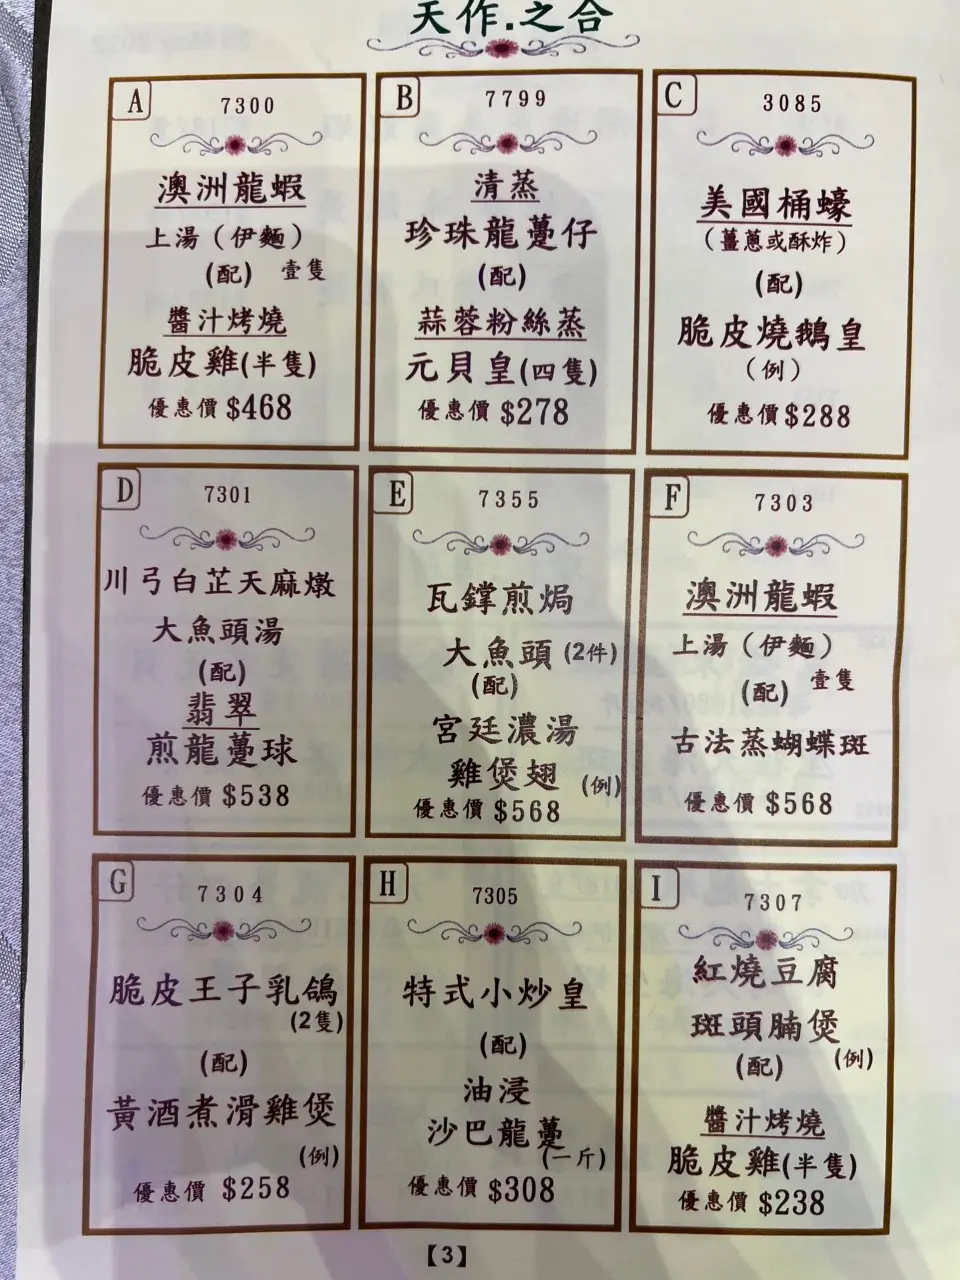 天作.之合
A
7300
澳洲龍蝦
上湯（伊麵）
(配) 壹隻
醬汁烤燒
脆皮雞(半隻)
優惠價 $468
B
7799
清蒸
珍珠龍躉仔
(配)
蒜蓉粉絲蒸
元貝皇(四隻)
優惠價 $278
C
3085
美國桶蠔
（薑蔥或酥炸）
(配)
脆皮燒鵝皇
（例）
優惠價 $288
D
7301
川弓白芷天麻燉
大魚頭湯
(配)
翡翠
煎龍躉球
優惠價 $538
E
7355
瓦鐣煎焗
大魚頭(2件)
(配)
宮廷濃湯
雞煲翅 (例)
優惠價 $568
F
7303
澳洲龍蝦
上湯（伊麵）
(配) 壹隻
古法蒸蝴蝶斑
優惠價 $568
G
7304
脆皮王子乳鴿
(2隻)
(配)
黃酒煮滑雞煲
(例)
優惠價 $258
H
7305
特式小炒皇
(配)
油浸
沙巴龍躉
(一斤)
優惠價 $308
I
7307
紅燒豆腐
斑頭腩煲
(配) (例)
醬汁烤燒
脆皮雞(半隻)
優惠價 $238
【3】